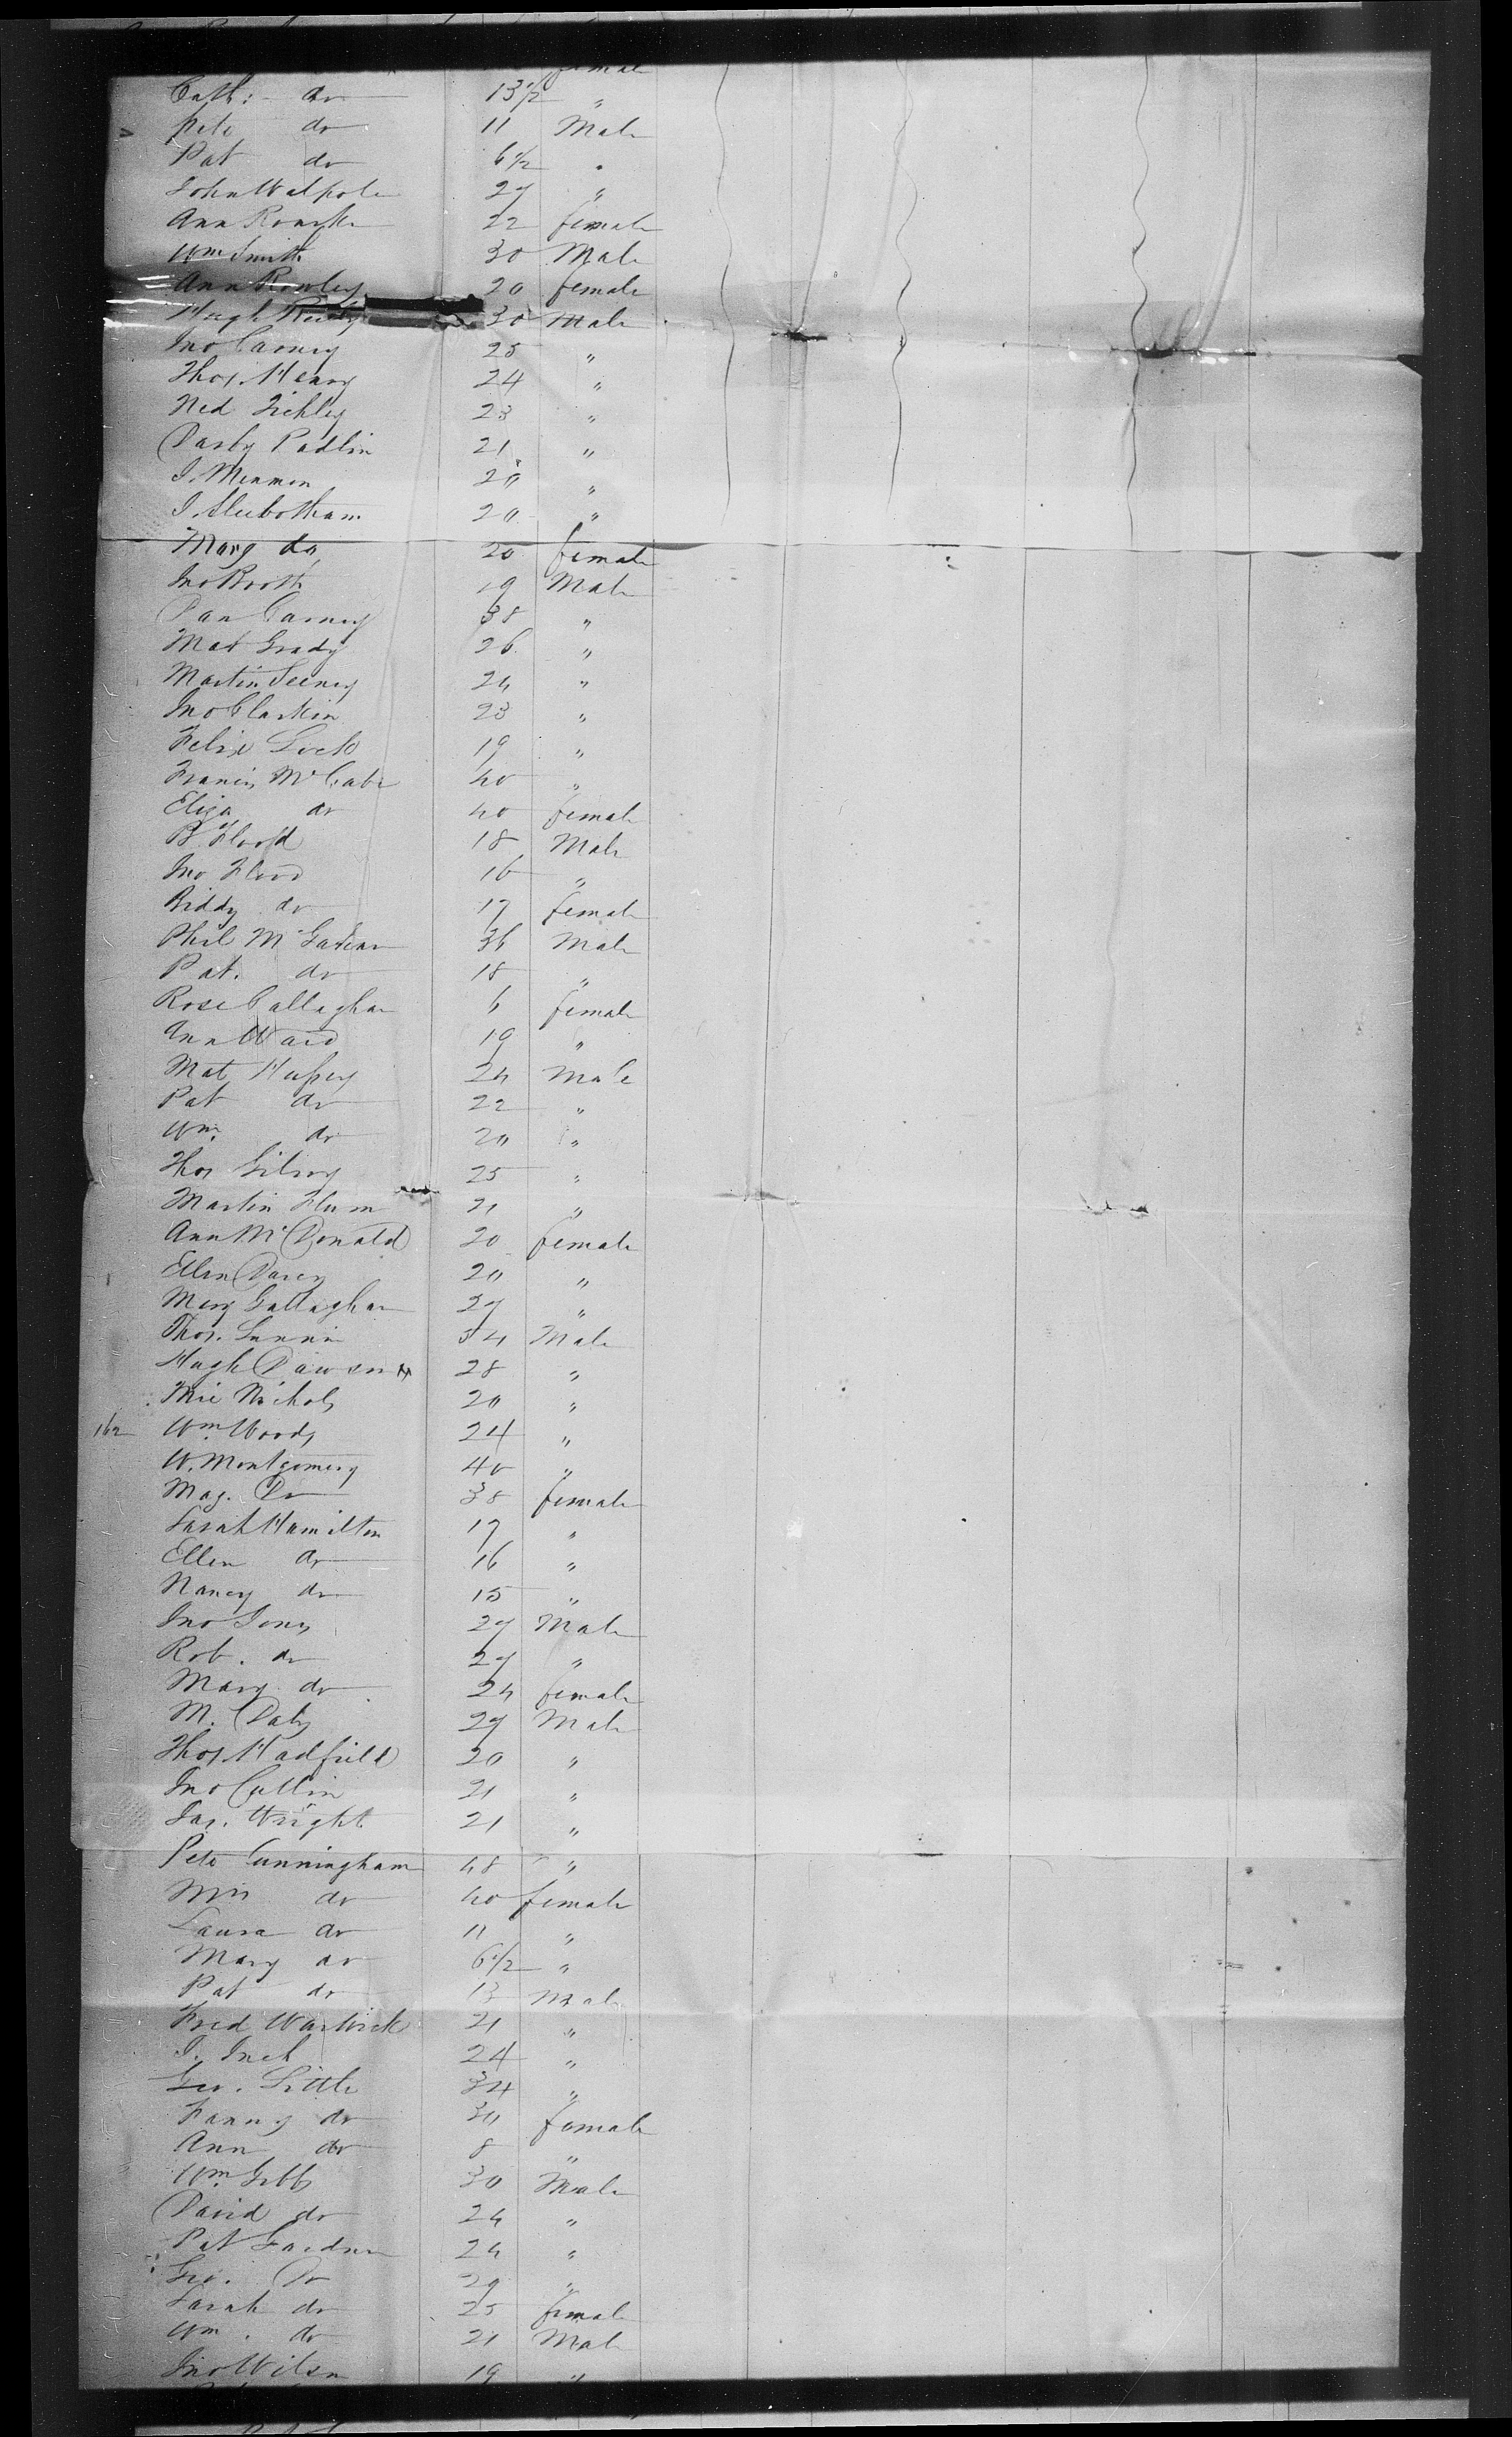 female
Cath: do 13½ "
Pete do 11 Male
Pat do 6½ "
John Walpole 27 "
Ann Rourke 22 female
Wm Smith 30 Male
Ann Rowley 20 female
Hugh 30 Male
Jno Carney 25 "
Thos. Henry 24 "
Ned 23 "
Darby Padlin 21 "
J. 20 "
J. Sleebotham 20 "
Marg do 20 female
Jno Booth 19 Male
Dan Carney 38 "
Mat Grady 26 "
Martin Feeney 24 "
Jno Clarkin 23 "
Felix 19 "
Francis McCabe 40 "
Eliza do 40 female
B. Flood 18 Male
Jno Flood 16 "
Biddy do 17 female
Phil 36 Male
Pat. do 18 "
Rose Callaghan 6 female
Ann Ward 19 "
Mat 24 Male
Pat do 22 "
Wm. do 20 "
Thos Gilroy 25 "
Martin 21 "
Ann McDonald 20 female
Ellen Darcy 20 "
Mary Gallaghar 27 "
Thos. 34 Male
Hugh Dawson 28 "
Mic Nichols 20 "
162 Wm. Woods 24 "
W. Montgomery 40 "
Mag. Do 38 female
Sarah Hamilton 17 "
Ellen do 16 "
Nancy do 15 "
Jno Jones 27 Male
Rob. do 27 "
Mary do 24 female
M. Daly 27 Male
Thos Hadfield 20 "
Jno Cullin 21 "
Jas. Wright 21 "
Pete Cunningham 48 "
Mrs do 40 female
Laura do 11 "
Mary do 6½ "
Pat do 13 Male
Fred Warwick 21 "
J. Inch 24 "
Geo. Little 34 "
Fanny do 30 female
Ann do 8 "
Wm. Gibbs 30 Male
David do 24 "
Pat Gardner 24 "
Geo. Do 29 "
Sarah do 25 female
Wm. do 21 Male
Jno Wilson 19 "